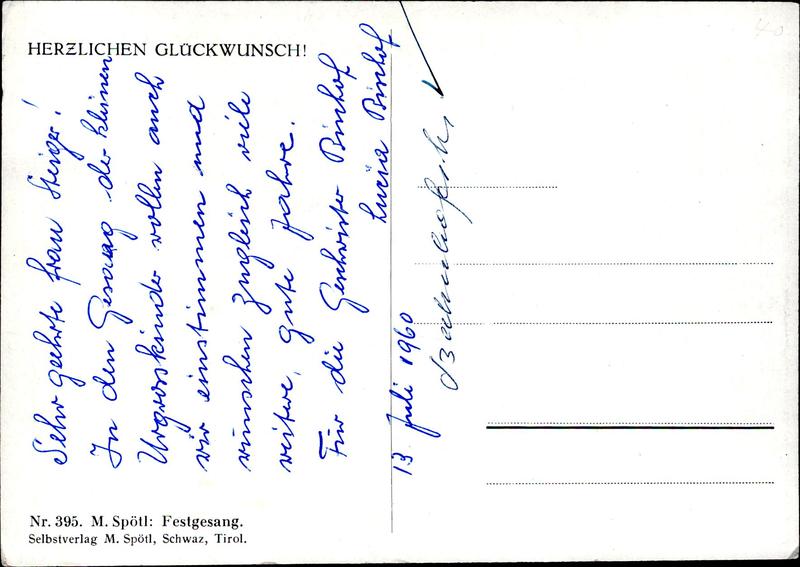 HERZLICHEN GLÜCKWUNSCH!
Sehr geehrte Frau Steiger!
In den Gesang der kleinen
Urgrosskinder wollen auch
wir einstimmen und
wünschen zugleich viele
weitere, gute Jahre.
Für die Geschwister Bischof
Luzia Bischof
13 Juli 1960
Nr. 395. M. Spötl: Festgesang.
Selbstverlag M. Spötl, Schwaz, Tirol.
40